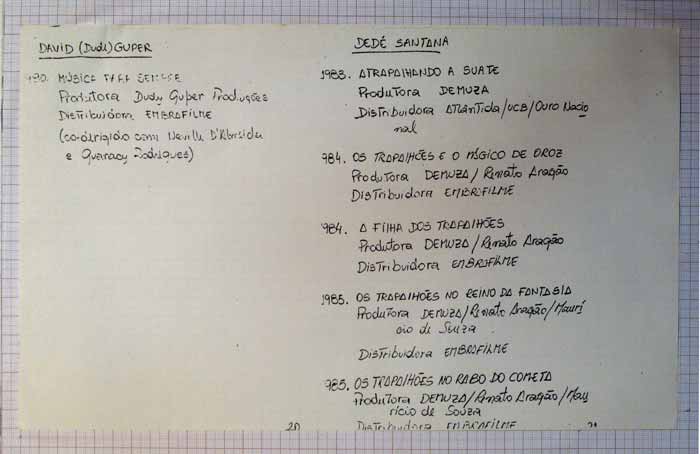 DAVID (Dudu) GUPER
980. MÚSICA PARA SEMPRE
Produtora Dudu Guper Produções
Distribuidora EMBRAFILME
(co-dirigido com Neville D'Almeida
e Guaracy Rodrigues)
20
DEDÉ SANTANA
1983. ATRAPALHANDO A SUATE
Produtora DEMUZA
Distribuidora Atlântida/UCB/Ouro Nacio
nal
984. OS TRAPALHÕES E O MÁGICO DE OROZ
Produtora DEMUZA/Renato Aragão
Distribuidora EMBRAFILME
984. A FILHA DOS TRAPALHÕES
Produtora DEMUZA/Renato Aragão
Distribuidora EMBRAFILME
1985. OS TRAPALHÕES NO REINO DA FANTASIA
Produtora DEMUZA/Renato Aragão/Maurí
cio de Souza
Distribuidora EMBRAFILME
985. OS TRAPALHÕES NO RABO DO COMETA
Produtora DEMUZA/Renato Aragão/Mau
rício de Souza
Distribuidora EMBRAFILME